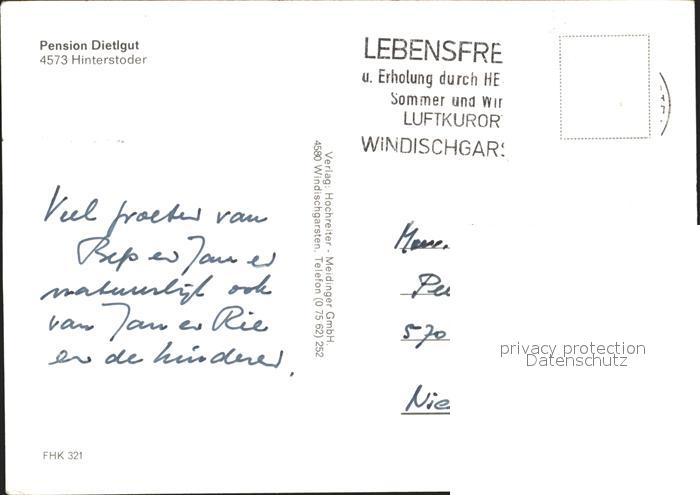 Pension Dietlgut
4573 Hinterstoder
LEBENSFRE
u. Erholung durch HE
Sommer und Wir
LUFTKUROR
WINDISCHGARS
Verlag: Hochreiter - Meidinger GmbH.
4580 Windischgarsten, Telefon (0 75 62) 252
Veel groeten van
Bep en Jan en
natuurlijk ook
van Jan en Rie
en de kinderen.
Pe
570
Nie
privacy protection
Datenschutz
FHK 321